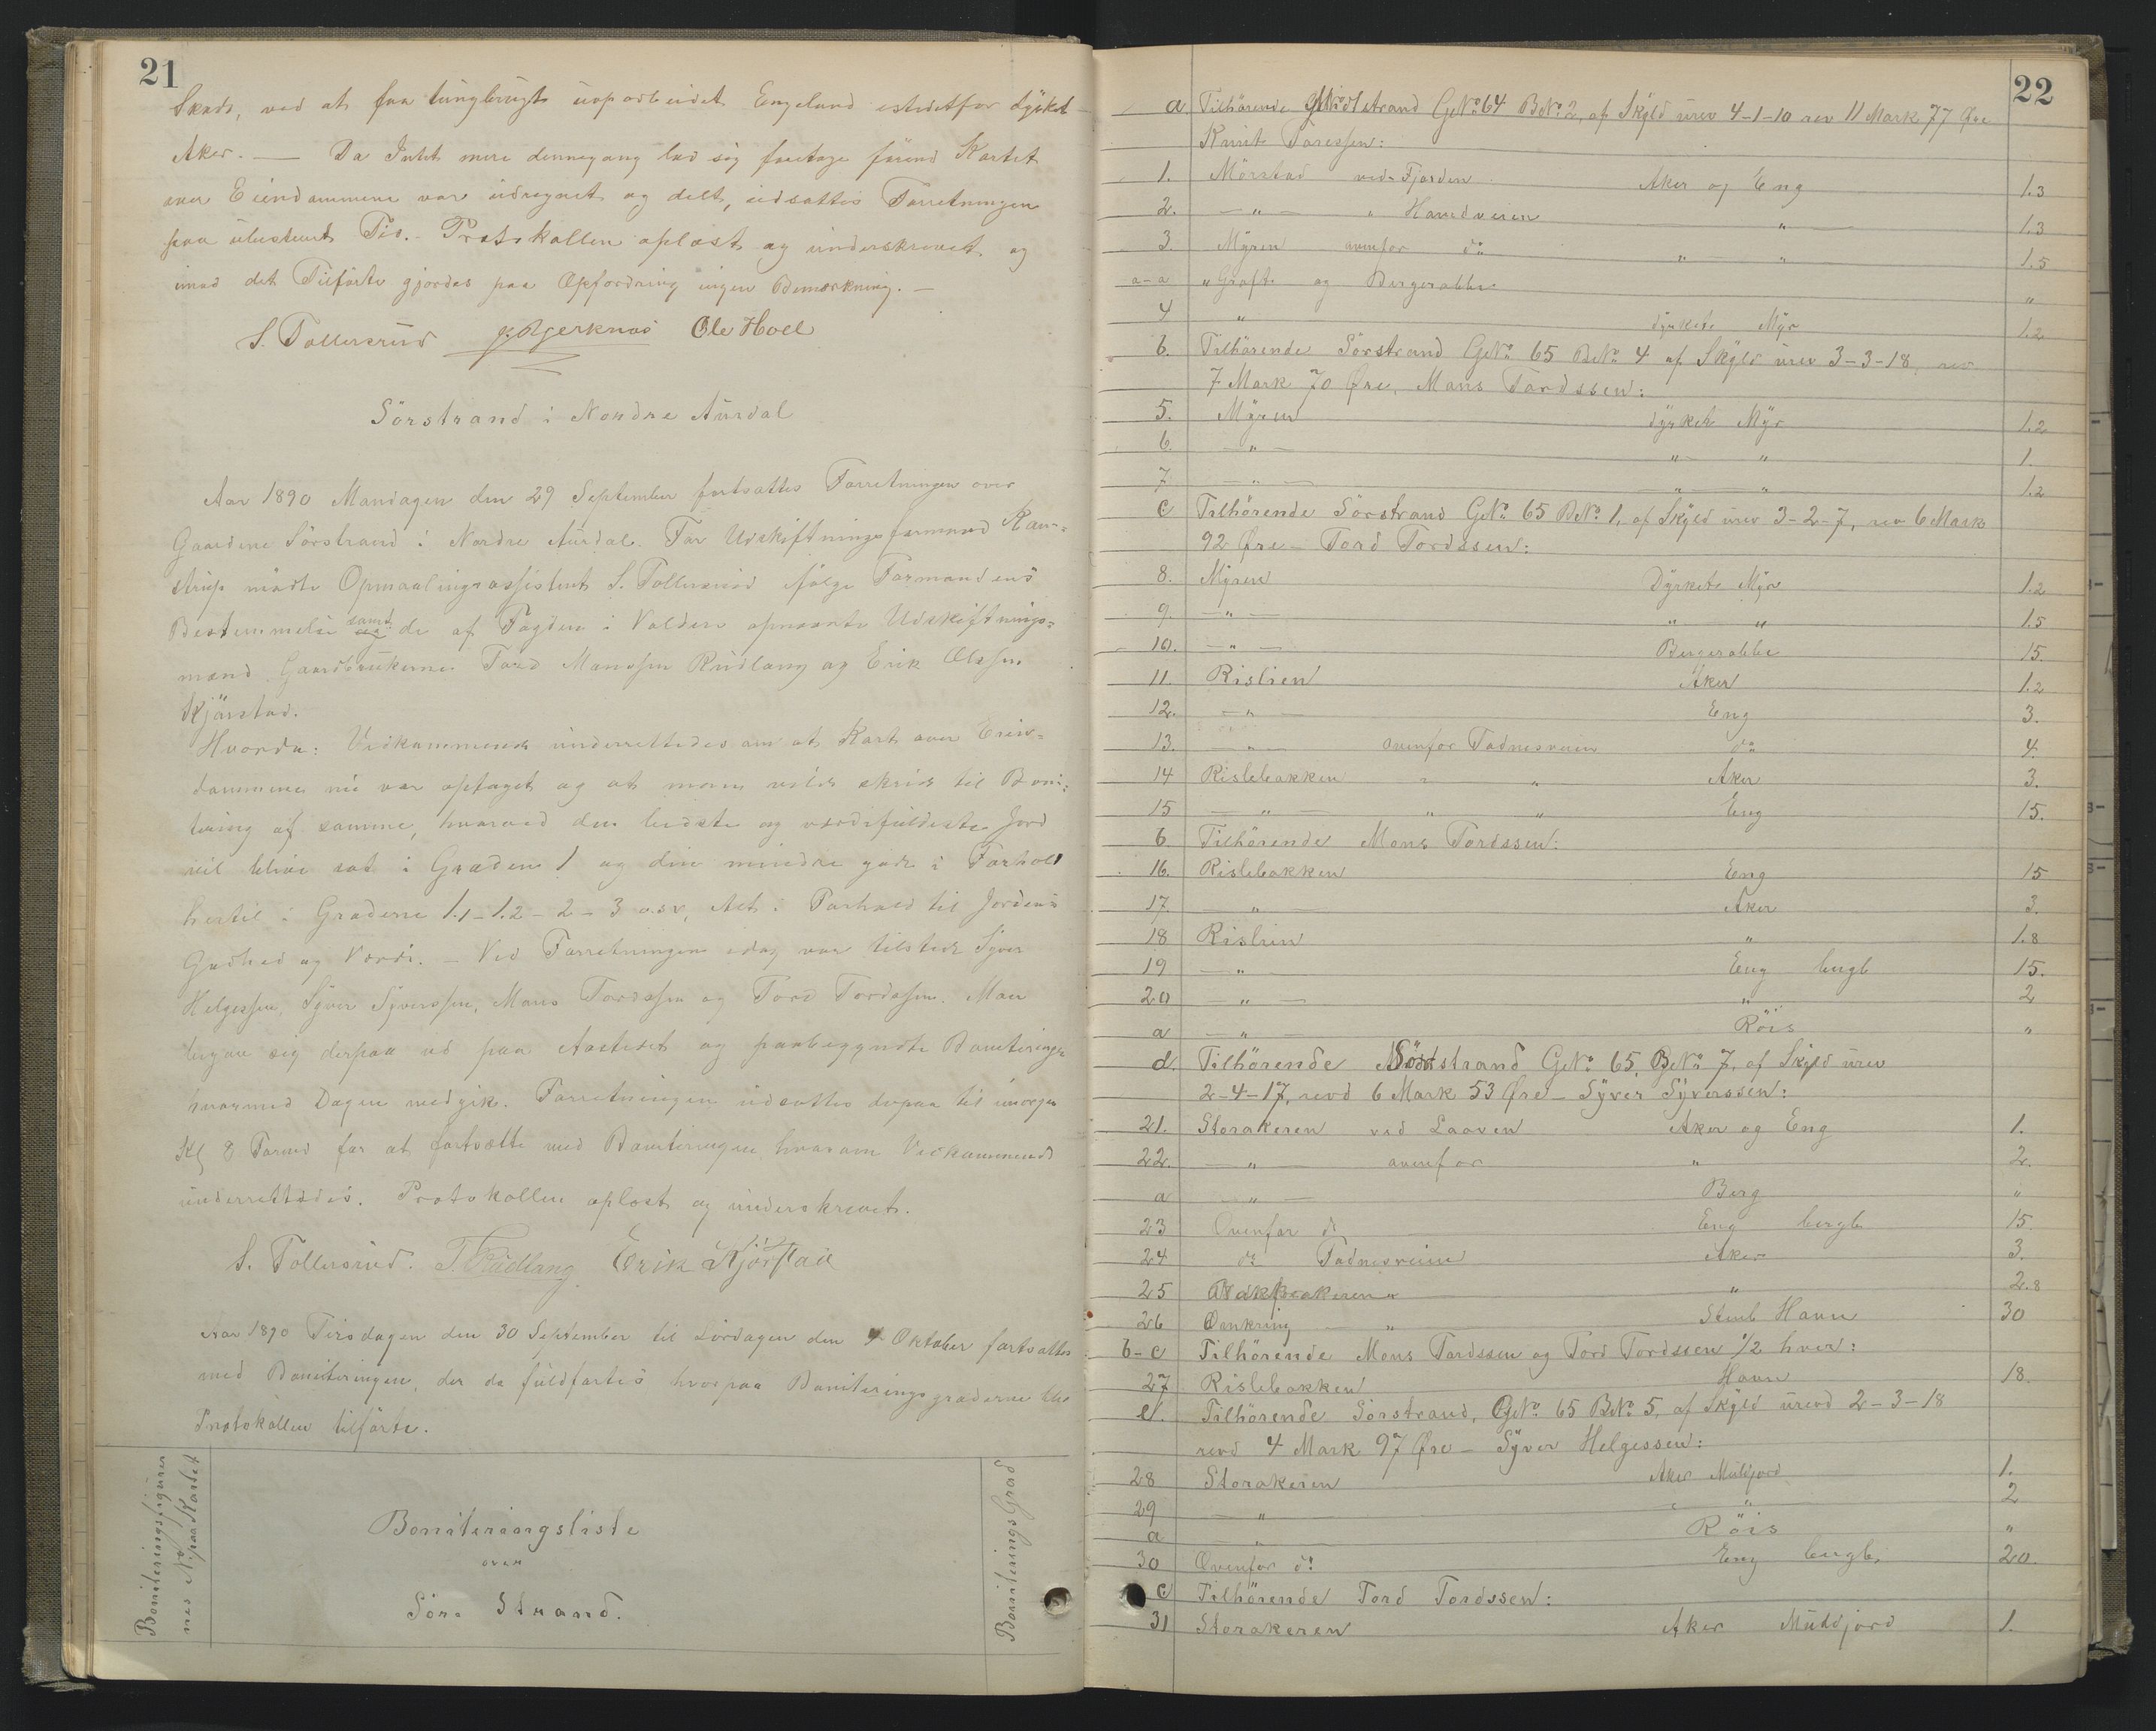 21
Skade, ved at faa tungbrugt uoparbeidet Engeland istedetfor dyrket
Aker. — Da Intet mere dennegang lod sig foretage førend Kartet
over Eiendommene var udregnet og delt, udsattes Forretningen
paa ubestemt Tid. Protokollen oplæst og underskrevet og
imod det Tilførte gjordes paa Opfordring ingen Bemærkning. —
S. Tollersrud Ole Hoel
Sörstrand i Nordre Aurdal
Aar 1890 Mandagen den 29 September fortsattes Forretningen over
Gaardene Sörstrand i Nordre Aurdal. For Udskiftningsformand Ram=
strup mödte Opmaalingsassistent S. Tollersrud ifølge Formandens
Bestemmelse samt de af Fogden i Valders opnævnte Udskiftnings=
mænd Gaardbrukerne Tord Monssen Ridlang og Erik Olessen
Kjörstad.
Hvorda: Vedkommende underrettedes om at Kart over Eien=
dommene nu var optaget og at man vilde skride til Boni=
tering af samme, hvorved den bedste og værdifuldeste Jord
vil blive sat i Graden 1 og den mindre gode i Forhold
hertil i Graderne 1.1 - 1.2 - 2 - 3 osv, Alt i Forhold til Jordens
Godhed og Værdi. — Ved Forretningen idag var tilstede Syver
Helgessen, Syver Syverssen, Mons Tordssen og Tord Tordssen. Man
begav sig derpaa ud paa Aastedet og paabegyndte Boniteringen
hvormed Dagen medgik. Forretningen udsattes derpaa til imorgen
Kl 8 Formd for at fortsætte med Boniteringen, hvorom Vedkommende
underrettedes. Protokollen oplæst og underskrevet.
S. Tollersrud. T. Ridlang Erik Kjörstad
Aar 1890 Tirsdagen den 30 September til Lördagen den 4 Oktober fortsattes
med Boniteringen, der da fuldførtes hvorpaa Boniteringsgraderne blev
Protokollen tilförte.
Boniteringsfigurer
nes No paa Kartet
Boniteringsliste
over
Söre Strand.
BoniteringsGrad
22
a Tilhörende strand GNo 64 BNo 2, af Skyld urev 4-1-10 rev 11 Mark 77 Øre
Knut Toressen:
1. Mörstad ved Fjorden Aker og Eng 1.3
2. — " — " Hovedveien " 1.3
3. Myren ovenfor do " " 1.5
a-a " Gröft og Bergerabbe "
4 " dyrket Myr 1.2
b. Tilhörende Sörstrand GNo 65 BNo 4 af Skyld urev 3-3-18, rev
7 Mark 70 Øre, Mons Tordssen:
5. Myren dyrket Myr 1.2
6. — " — " " 1.
7. — " — " " 1.2
c Tilhörende Sörstrand GNo 65 BNo 1, af Skyld urev 3-2-7, rev 6 Mark
92 Øre — Tord Tordssen:
8. Myren Dyrket Myr 1.2
9. — " — " " 1.5
10. — " — Bergerabbe 15.
11. Rislien Aker 1.2
12. — " — Eng 3.
13. — " — ovenfor Fadnesveien do 4.
14 Rislebakken " " Aker 3.
15 — " — " " Eng 15.
b Tilhörende Mons Tordssen:
16. Rislebakken Eng 15
17. — " — Aker 3.
18 Rislien " 1.8
19 — " — Eng bergl 15.
20 — " — " 2
a — " — Röis "
d. Tilhörende Sörstrand GNo 65, BNo 7, af Skyld urev
2-4-17, revd 6 Mark 53 Øre — Syver Syverssen:
21. Storakeren ved Laaven Aker og Eng 1.
22. — " — ovenfor " 2.
a — " — Berg "
23 Ovenfor do Eng bergl 15.
24 do Fadnesveien Aker 3.
25 " " 2.8
26 Omkring " Stenb Havn 30
b-c Tilhörende Mons Tordssen og Tord Tordssen 1/2 hver:
27 Rislebakken Havn 18.
e. Tilhörende Sörstrand, GNo 65 BNo 5, af Skyld urevd 2-3-18
revd 4 Mark 97 Øre — Syver Helgessen:
28 Storakeren Aker Muldjord 1.
29 — " — " 2
a — " — Röis "
30 Ovenfor do Eng bergl. 20.
c Tilhörende Tord Tordssen:
31 Storakeren Aker Muldjord 1.